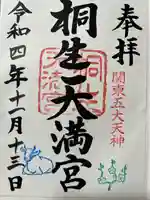 奉拝
関東五大天神
桐生天満宮
令和四年十一月十三日